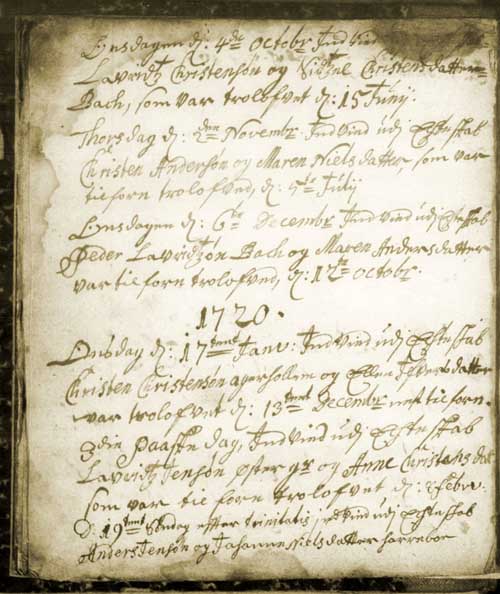 Onsdagen d: 4de Octobr Indvied
Lavridtz Christensøn og Sidtzel Christensdatter
Bach, som var trolofvet d: 15 Junij.
Thorsdag d: 2den Novembr Indvied udj Egteskab
Christen Andersøn og Maren Nielsdatter, som var
tilforn trolofved, d: 5te Julij
Onsdagen d: 6te Decembr Indvied udj Egteskab
Peder Lavridtzøn Bach og Maren Andersdatter
var tilforn trolofved, d: 12te Octobr.
1720.
Onsdag d: 17tende Janv: Indvied udj Egteskab
Christen Christensøn agerhollem og Ellen
var trolofvet d: 13tende Decembr nest tilforn.
3die Paaske dag, Indvied udj Egteskab
Lavridtz Jensøn øster og Anne
som var tilforn trolofvet d: 2 Febr.
D: 19tende Søndag efter trinitatis indvied udj Egteskab
Anders Jensøn og Johanne Nielsdatter